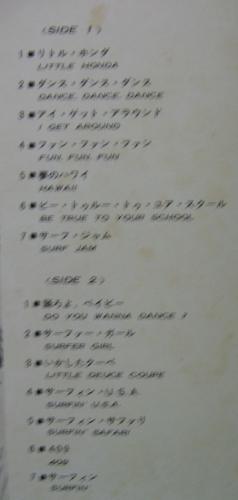 (SIDE 1)
1■リトル・ホンダ
LITTLE HONDA
2■ダンス・ダンス・ダンス
DANCE, DANCE, DANCE
3■アイ・ゲット・アラウンド
I GET AROUND
4■ファン・ファン・ファン
FUN, FUN, FUN
5■夢のハワイ
HAWAII
6■ビー・トゥルー・トゥ・ユア・スクール
BE TRUE TO YOUR SCHOOL
7■サーフ・ジャム
SURF JAM
(SIDE 2)
1■踊ろよ、ベイビー
DO YOU WANNA DANCE ?
2■サーファー・ガール
SURFER GIRL
3■いかしたクーペ
LITTLE DEUCE COUPE
4■サーフィン・U.S.A.
SURFIN' U.S.A.
5■サーフィン・サファリ
SURFIN' SAFARI
6■409
409
7■サーフィン
SURFIN'